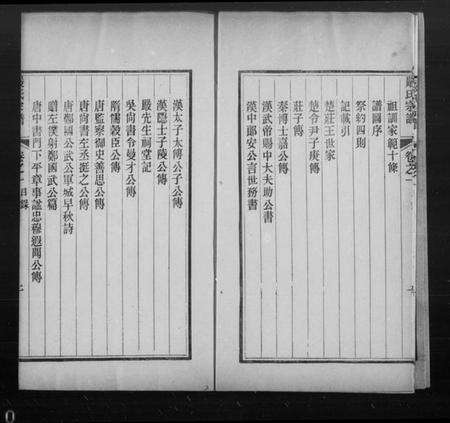 嚴氏家譜 卷之一
祖訓家範十條
譜圖序
祭約四則
記載引
楚莊王世家
楚令尹子庚傳
莊子傳
秦博士諱公傳
漢武帝賜中大夫助公書
漢中郎安公言世務書
漢太子太傅公子公傳
漢隱士子陵公傳
嚴先生祠堂記
吳尙書令曼才公傳
隋儒毅臣公傳
唐監察御史善思公傳
唐尙書左丞挺之公傳
唐鄭國公武公軍城早秋詩
贈左僕射鄭國武公篇
唐中書門下平章事諡忠穆遐聞公傳
卷之一目錄
七
0